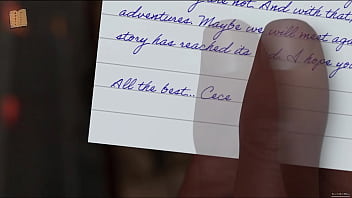 are not And with that
adventures. Maybe we will meet aga
story has reached its I hope you
All the best... Cece